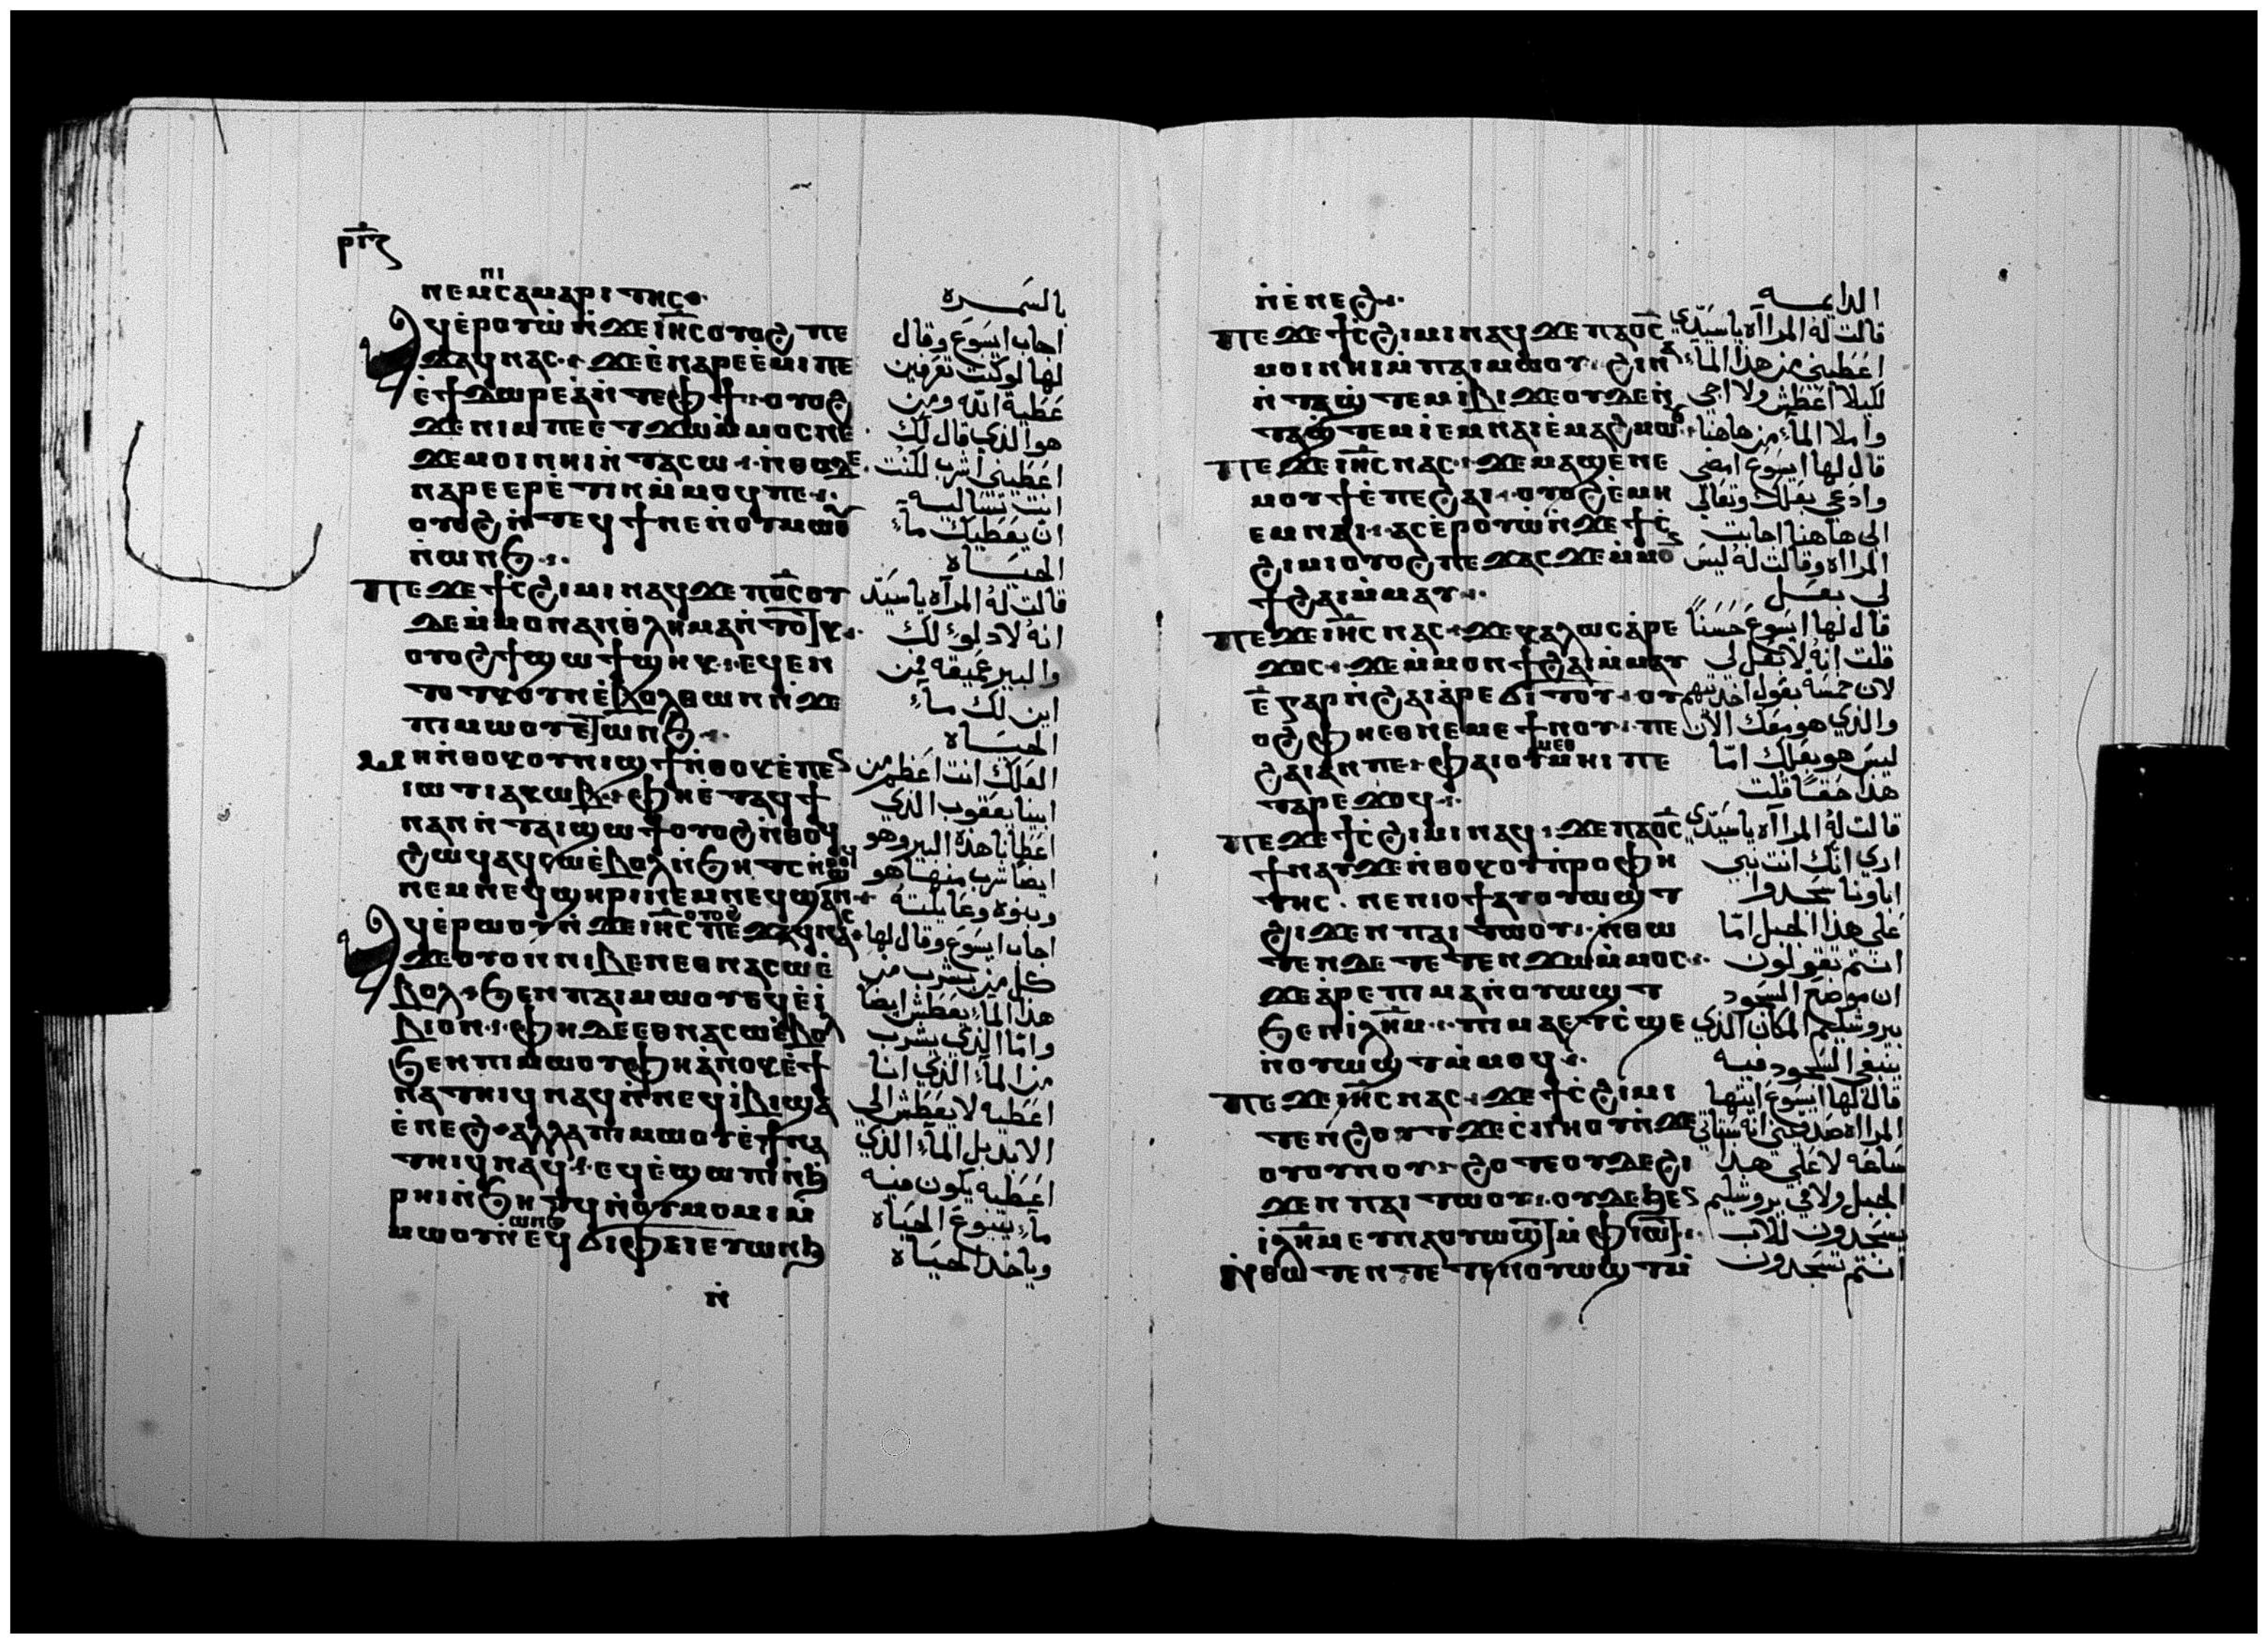 ⲣⲓⲋ
ⲛⲉⲙⲛⲓⲥⲁⲙⲁⲣⲓⲧⲏⲥ
ⲁϥⲉ̀ⲣⲟⲩⲱ̀ⲛ̀ϫⲉⲓⲏ̅ⲥ̅ⲟⲩⲟϩⲡⲉ
ϫⲁϥⲛⲁⲥ ϫⲉⲉ̀ⲛⲁⲣⲉⲉ̀ⲙⲓⲡⲉ
ⲉ̀ϯⲇⲱⲣⲉⲁ̀ⲛ̀ⲧⲉⲫϯ ⲟⲩⲟϩ
ϫⲉⲛⲓⲙⲡⲉⲉⲧϫⲱⲙ̀ⲙⲟⲥⲛⲉ
ϫⲉⲙⲟⲓⲛⲏⲓⲛ̀ⲧⲁⲥⲱ ⲛ̀ⲑⲟⲇⲉ
ⲛⲁⲣⲉⲉⲣⲉ̀ⲧⲓⲛⲙ̀ⲙⲟϥⲡⲉ
ⲟⲩⲟϩⲛ̀ⲧⲉϥϯⲛⲉⲛ̀ⲟⲩⲙⲱⲟⲩ
ⲛ̀ⲱⲛϧ
ⲡⲉϫⲉϯⲥ̀ϩⲓⲙⲓⲛⲁϥϫⲉⲡϭ̅ⲥ̅ⲟⲩ
ⲇⲉⲙ̀ⲙⲟⲛⲁⲛⲑ̀ⲗⲏⲙⲁⲛ̀ⲧⲟⲧⲕ
ⲟⲩⲟϩϯϣⲱϯϣⲏⲕ ⲉϥⲉⲛ
ⲧⲟⲧⲕⲟⲩⲛⲉ̀ⲃⲟⲗⲑⲱⲛⲛ̀ϫⲉ
ⲡⲓⲙⲱⲟⲩⲉⲧⲱⲛϧ
ⲙⲏⲛ̀ⲑⲟⲕⲟⲩⲛⲓϣϯⲛ̀ⲑⲟⲕⲉ̀ⲡⲉ
ⲓⲱⲧⲓⲁⲕⲱⲃ ⲫⲏⲉ̀ⲧⲁϥϯ
ⲛⲁⲛⲛ̀ⲧⲁⲓϣⲱϯⲟⲩⲟϩⲛ̀ⲑⲟϥ
ϩⲱϥⲁϥⲥⲱⲉ̀ⲃⲟⲗⲛ̀ϧⲏⲧⲥⲛ̀ⲑⲟϥ
ⲛⲉⲙⲛⲉϥϣⲏⲣⲓⲛⲉⲙⲛⲉϥϣⲁⲛ
ⲁϥⲉ̀ⲣⲱⲟⲩⲛ̀ϫⲉⲓⲏ̅ⲥ̅ⲟⲩⲟϩⲡⲉϫⲁϥⲛⲁⲥ
ϫⲉⲟⲩⲟⲛⲛⲓⲃⲉⲛⲉⲑⲛⲁⲥⲱⲉ̀
ⲃⲟⲗ ϧⲉⲛⲡⲁⲓⲙⲱⲟⲩⲉϥⲉ̀ⲓ̀
ⲃⲓⲟⲛ ⲫⲏⲇⲉⲉⲑⲛⲁⲥⲱⲉ̀ⲃⲟⲗ
ϧⲉⲛⲡⲓⲙⲱⲟⲩⲫⲏⲁ̀ⲛⲟⲕⲉ̀ϯ
ⲛⲁⲧⲏⲓϥⲛⲁϥⲛ̀ⲛⲉϥⲓ̀ⲃⲓϣⲁ
ⲉ̀ⲛⲉϩ ⲁⲗⲗⲁⲡⲓⲙⲱⲟⲩⲉ̀ϯⲛⲁ
ⲧⲏⲓϥⲛⲁϥ ⲉϥⲉ̀ϣⲱⲡⲓⲛ̀ϧ
ⲣⲏⲓⲛ̀ϧⲏⲧϥⲛ̀ⲟⲩⲙⲟⲩⲙⲓⲙ̀
ⲙⲱⲟⲩⲛ̀ⲱⲛϧⲉϥϭⲓⲫⲉⲓⲉⲩⲱⲛϧ
ⲛ̀
بالسمره
اجاب ايسوع وقال
لها لو كنت تعرفين
عطية الله ومن
هو الذي قال لك
اعطيني اشرب لكنت
انت تساليه
ان يعطيك ماء
الحياه
قالت له المرآه يا سيد
انه لا دلو لك
والبير عميقه فمن
اين لك ماء
الحياه
العلك انت اعظم من
ابينا يعقوب الذي
اعطانا هذه البير وهو
ايضا شرب منها هو
وبنوه وعايلته
اجاب ايسوع وقال لها
كل من يشرب من
هذا الماء يعطش ايضا
واما الذي يشرب
من الماء الذي انا
اعطيه لا يعطش الى
الابد بل الماء الذي
اعطيه يكون فيه
ماء ينبوع الحياه
وياخذ الحياه
ⲛ̀ⲉ̀ⲛⲉϩ
ⲡⲉϫⲉϯⲥ̀ϩⲓⲙⲓⲛⲁϥϫⲉⲡⲁϭ̅ⲥ̅
ⲙⲟⲓⲛⲏⲓⲙ̀ⲡⲁⲓⲙⲱⲟⲩ ϩⲓⲛⲁ
ⲛ̀ⲧⲁϣⲧⲉⲙⲓ̀ⲃⲓⲇⲉⲟⲩⲇⲉⲛ̀
ⲧⲁϣⲧⲉⲙⲓ̀ⲉⲙⲛⲁⲓⲉ̀ⲙⲁϩⲙⲱⲟⲩ
ⲡⲉϫⲉⲓⲏ̅ⲥ̅ⲛⲁⲥ ϫⲉⲙⲁϣⲉ̀ⲛⲉ
ⲙⲟⲩϯⲉ̀ⲡⲉϩⲁⲓ ⲟⲩⲟϩⲉ̀ⲙⲏ
ⲉⲙⲛⲁⲓ ⲁⲥⲉ̀ⲣⲟⲩⲱ̀ⲛ̀ϫⲉϯⲥ̀
ϩⲓⲙⲓⲟⲩⲟϩⲡⲉϫⲁⲥϫⲉⲙ̀ⲙⲟ
ϯϩⲁⲓⲙ̀ⲙⲁⲩ
ⲡⲉϫⲉⲓⲏ̅ⲥ̅ⲛⲁⲥ ϫⲉⲕⲁⲗⲱⲥⲁ̀ⲣⲉ
ϫⲟⲥ ϫⲉⲙ̀ⲙⲟⲛϯϩⲁⲓⲙ̀ⲙⲁⲩ
ⲉ̅ⲅⲁⲣⲛ̀ϩⲁⲓⲁ̀ⲣⲉϭⲓⲧⲟⲩ ⲟⲩ
ⲟϩⲫⲏⲉⲑⲛⲉⲙⲉϯⲛⲟⲩ ⲡⲉ
ϩⲁⲓⲁⲛⲡⲉ ⲫⲁⲓⲟⲩⲙⲉⲑⲙⲏⲓⲡⲉ
ⲧⲁⲣⲉϫⲟϥ
ⲡⲉϫⲉϯⲥ̀ϩⲓⲙⲓⲛⲁϥ ϫⲉⲡⲁϭ̅ⲥ̅
ϯⲛⲁⲩϫⲉⲛ̀ⲑⲟⲕⲟⲩⲡ̀ⲣⲟⲫⲏ
ⲧⲏⲥ ⲛⲉⲛⲓⲟϯⲁⲩⲟⲩⲱϣⲧ
ϩⲓϫⲉⲛⲡⲁⲓⲧⲱⲟⲩ ⲛ̀ⲑⲱ
ⲧⲉⲛⲇⲉⲧⲉⲧⲉⲛϫⲱⲙ̀ⲙⲟⲥ
ϫⲉⲁ̀ⲣⲉⲡⲓⲙⲁⲛ̀ⲟⲩⲱϣⲧ
ϧⲉⲛⲓ̅ⲗ̅ⲏ̅ⲙ̅ ⲡⲓⲙⲁⲉⲧⲥ̀ϣⲉ
ⲛ̀ⲟⲩⲱϣⲧⲙ̀ⲙⲟϥ
ⲡⲉϫⲉⲓⲏ̅ⲥ̅ⲛⲁⲥ ϫⲉϯⲥ̀ϩⲓⲙⲓ
ⲧⲉⲛϩⲟⲩⲧϫⲉⲥ̀ⲛⲏⲟⲩⲛ̀ϫⲉ
ⲟⲩⲟⲩⲛⲟⲩ ϩⲟⲧⲉⲟⲩⲇⲉϩⲓ
ϫⲉⲛⲡⲁⲓⲧⲱⲟⲩ ⲟⲩⲇⲉϧⲉⲛ
ⲓ̅ⲗ̅ⲏ̅ⲙ̅ⲉⲩⲛⲁⲟⲩⲱϣⲧⲙ̀ⲫⲓⲱⲧ
ⲛ̀ⲑⲱⲧⲉⲛⲧⲉⲧⲉⲛⲟⲩⲱϣⲧⲙ̀
الدايمه
قالت له المرااه يا سيدي
اعطيني من هذا الماء
لكيلا اعطش ولا اجي
واملا الماء من هاهنا
قال لها ايسوع امضي
وادعي بعلك وتعالي
الى هاهنا اجابت
المرااه وقالت له ليس
لي بعل
قال لها ايسوع حسنًا
قلت انه لا بعل لي
لان خمسه بعول اخذتيهم
والذي هو معك الان
ليس هو بعلك اما
هذا حقًا قلت
قالت له المرااه يا سيدي
ارى انك انت نبي
اباونا سجدوا
على هذا الجبل اما
انتم تقولون
ان موضع السجود
بيروشليم المكان الذي
ينبغي السجود فيه
قال لها ايسوع ايتها
المرااه صدقيني انه ستاتي
ساعه لا على هذا
الجبل ولا في يروشليم
يسجدون للاب
انتم تسجدون